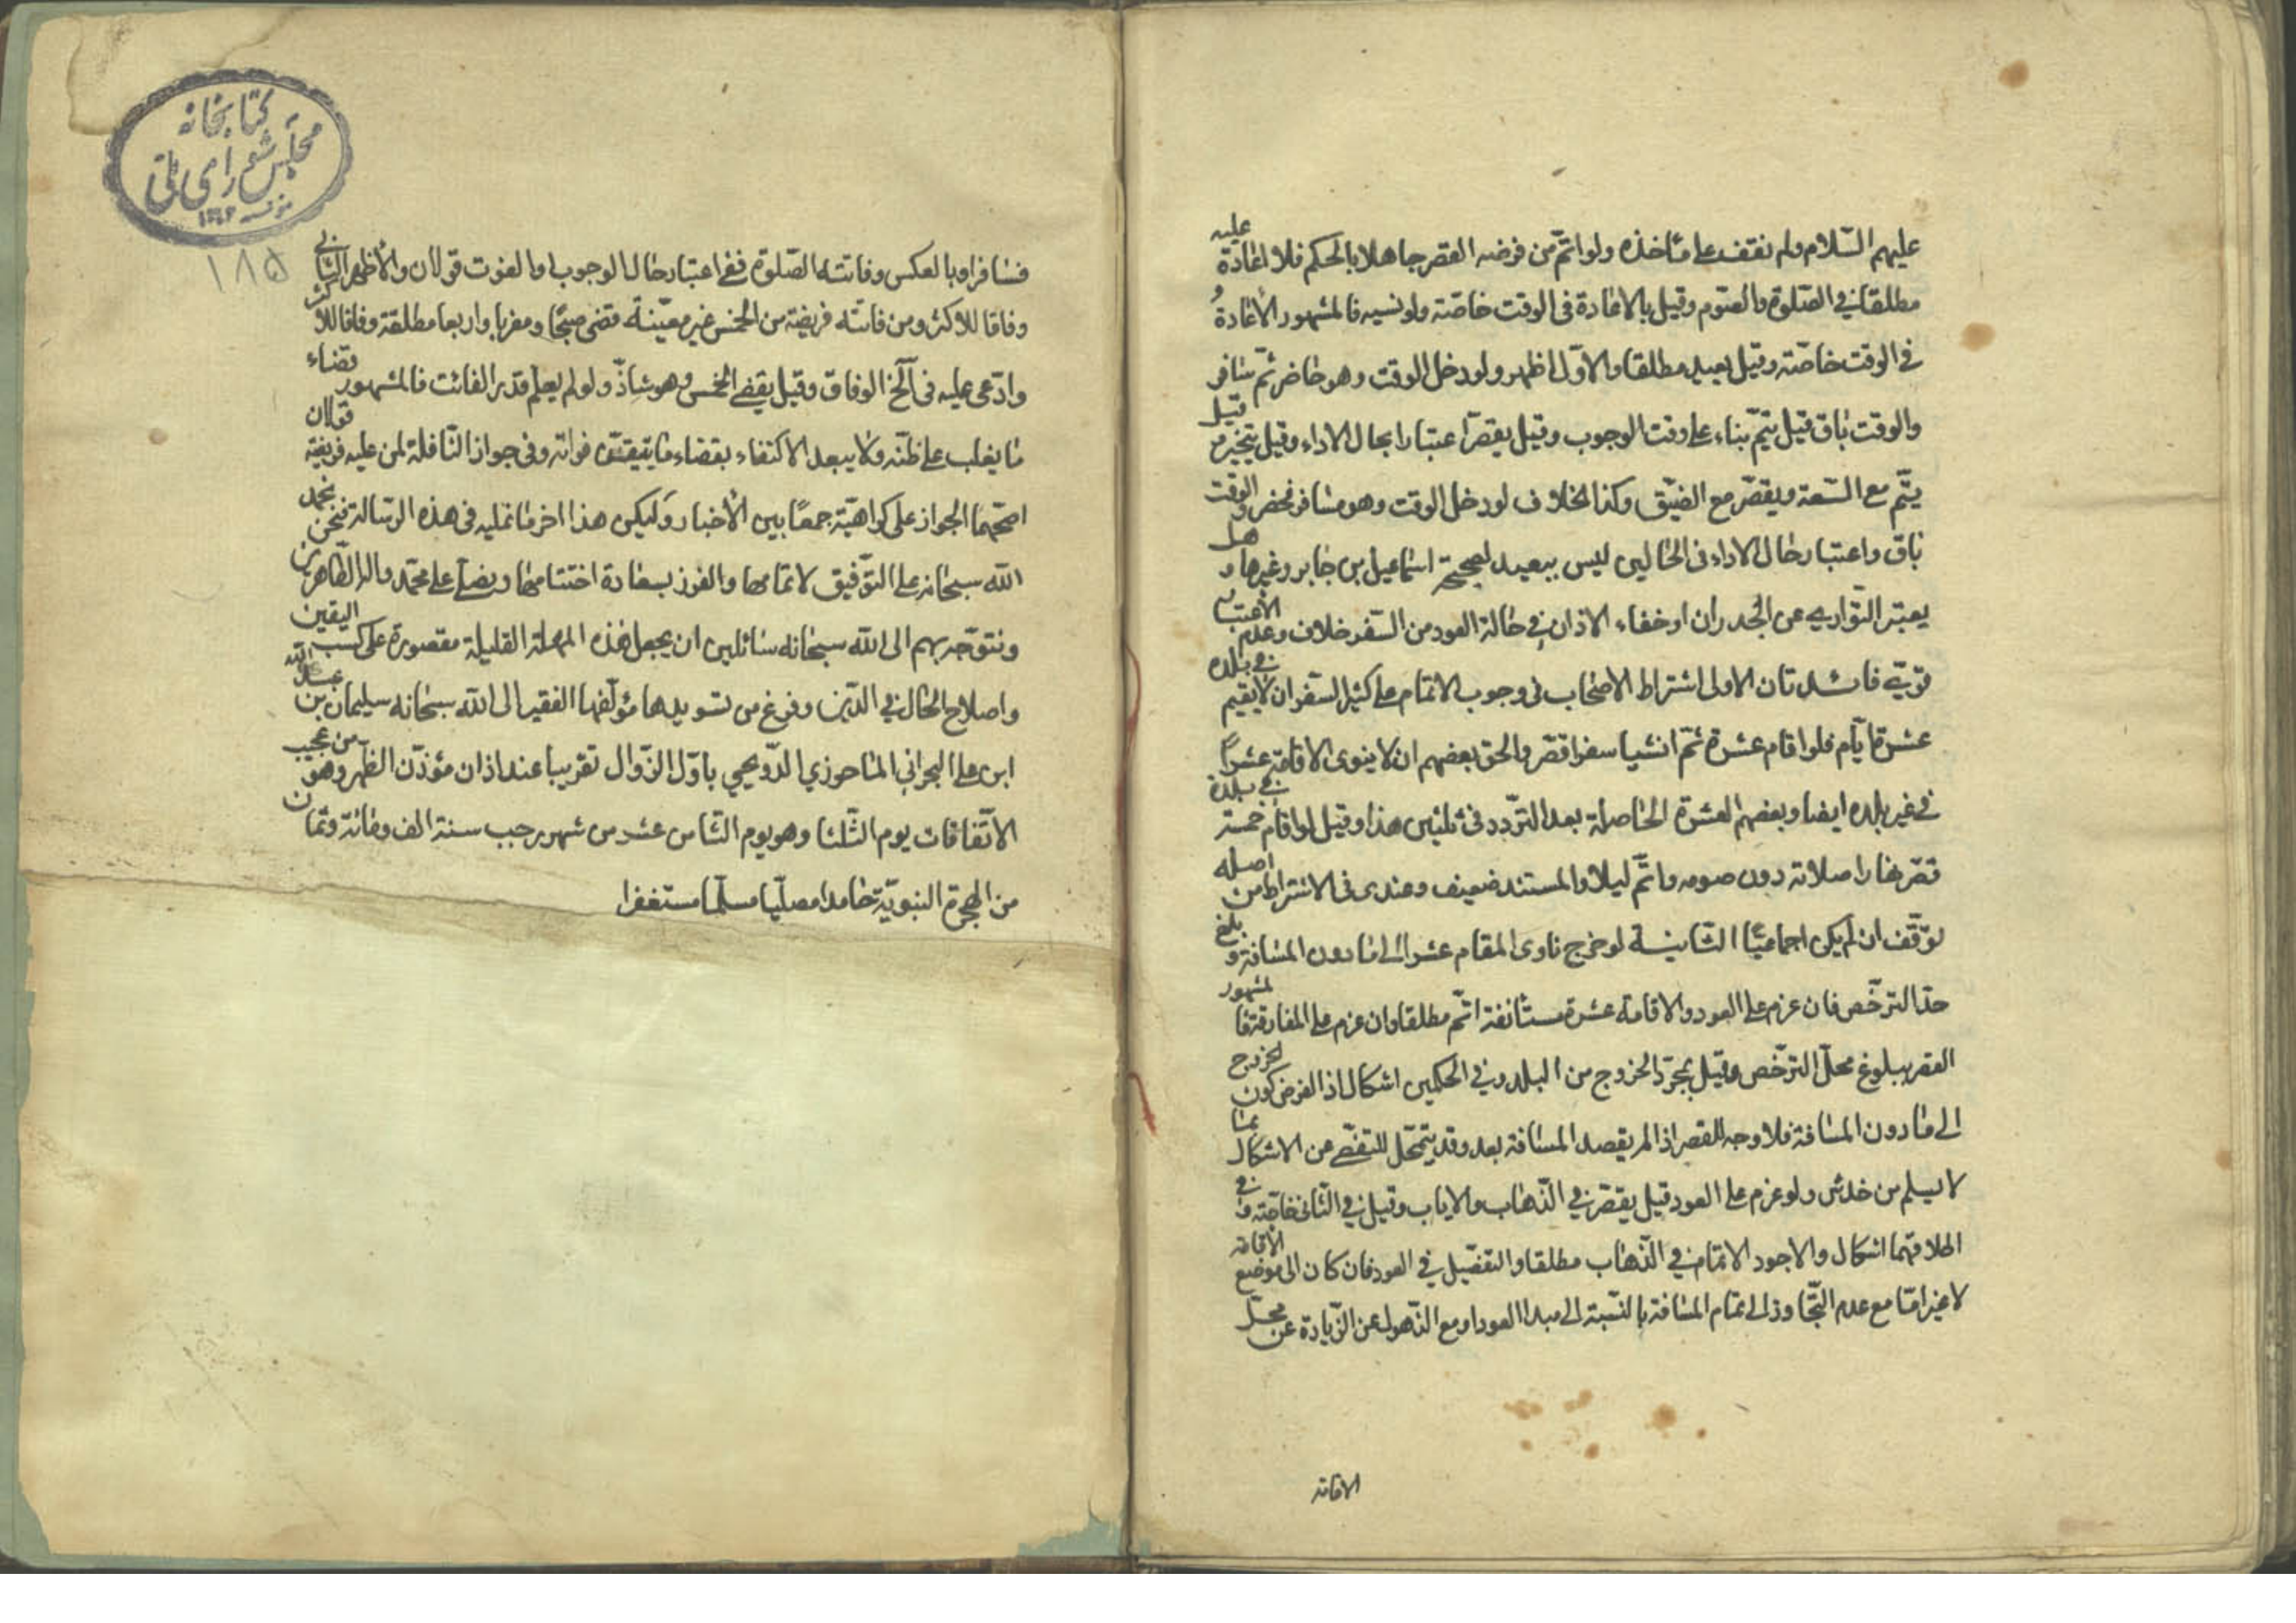 عليهم السّلام ولم نقف على مأخذه ولو اتمّ من فرضه القصر جاهلا بالحكم فلا اعادة عليه
مطلقا في الصّلوة والصّوم وقيل بالاعادة في الوقت خاصّة ولو نسيه فالمشهور الاعادة
في الوقت خاصّة وقيل يعيد مطلقا والاوّل اظهر ولو دخل الوقت وهو حاضر ثمّ سافر
والوقت باق قيل يتمّ بناء على وقت الوجوب وقيل يقصّر اعتبارا بحال الاداء وقيل يتخيّر وقيل
يتمّ مع السّعة ويقصّر مع الضيّق وكذا الخلاف لو دخل الوقت وهو مسافر فحضر والوقت
باق واعتبار حال الاداء في الحالين ليس ببعيد لصحيحة اسماعيل بن جابر وغيرها وهل
يعتبر التّواري عن الجدران او خفاء الاذان في حالة العود من السّفر خلاف وعدم الاعتبار
قويّ فائدتان الاولى اشترط الاصحاب في وجوب الاتمام على كثير السّفر ان لا يقيم في بلده
عشرة ايّام فلو اقام عشرة ثمّ انشيا سفرا قصّر والحق بعضهم ان لا ينوى الاقامة عشرا
في غير بلده ايضا وبعضهم العشرة الحاصلة بعد التّردد في ثلثين هذا وقيل لو اقام خمسة في بلده
قصّر نهارا صلاته دون صومه واتمّ ليلا والمستند ضعيف وعندى في الاشتراط من اصله
توقّف ان لم يكن اجماعيّا الثّانية لو خرج ناوى المقام عشرا الى ما دون المسافة وبلغ
حدّ الترخّص فان عزم على العود والاقامة عشرة مستأنفة اتمّ مطلقا وان عزم على المفارقة فالمشهور
القصر ببلوغ محلّ الترخّص وقيل بمجرّد الخروج من البلد وفي الحكمين اشكال اذ الفرض كون الخروج
الى ما دون المسافة فلا وجه للقصر اذا لم يقصد المسافة بعد وقد يتمحّل للتفصّي عن الاشكال بما
لا يسلم من خدش ولو عزم على العود قيل يقصّر في الذّهاب والاياب وقيل في الثّاني خاصّة وفي
اطلاقهما اشكال والاجود الاتمام في الذّهاب مطلقا والتفصيل في العود فان كان الى موضع الاقامة
لا غير امّا مع عدم التّجاوز الى تمام المسافة بالنّسبة الى مبدا العود او مع الذّهول عن الزّيادة عن محلّ
الاقامة
كتابخانه
مجلس شوراى ملّى
١٨٥
فسافر او بالعكس وفاتته الصّلوة ففي اعتبار حال الوجوب او الفوت قولان والاظهر الثاني
وفاقا للاكثر ومن فاتته فريضة من الخمس غير معيّنة قضى صبحًا ومغربا واربعا مطلقة وفاقا للاكثر
وادّعى عليه في الخ الوفاق وقيل يقضي الخمس وهو شاذّ ولو لم يعلم قدر الفائت فالمشهور قضاء
ما يغلب على ظنّه ولا يبعد الاكتفاء بقضاء ما يتيقّن فواته وفي جواز النّافلة لمن عليه فريضة قولان
اصحّهما الجواز على كراهيّة جمعًا بين الاخبار وليكن هذا اخر ما نمليه في هذه الرسالة فنحن نحمد
الله سبحانه على التوّفيق لاتمامها والفوز بسعادة اختتامها ونصلّي على محمّد واله الطّاهرين
ونتوّجه بهم الى الله سبحانه سائلين ان يجعل هذه المهلة القليلة مقصورة على كسب اليقين
واصلاح الحال في الدّين وفرغ من تسويدها مؤلّفها الفقير الى الله سبحانه سليمان بن عبد الله
ابن علي البحراني الماحوزي الدّونجي باوّل الزّوال تقريبا عند اذان مؤذّن الظّهر وهو من عجيب
الاتّفاقات يوم الثّلثا وهو يوم الثّامن عشر من شهر رجب سنة الف ومائة وثمان
من الهجرة النبويّة حامدا مصلّيا مسلّما مستغفرا